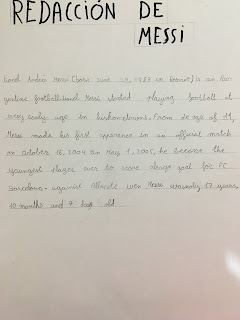 REDACCIÓN DE
MESSI
Andres Messi (born June 24, 1987 in is an Ar-
gentine Messi started playing football at
very early age in his hometown. From the age of 11,
Messi made his first apparence in an official match
on october 16, 2004 on May 1, 2005, he become the
youngest player ever to score league goal for FC
Barcelona- against Albacete wen Messi 17 years,
10 months and 7 days old